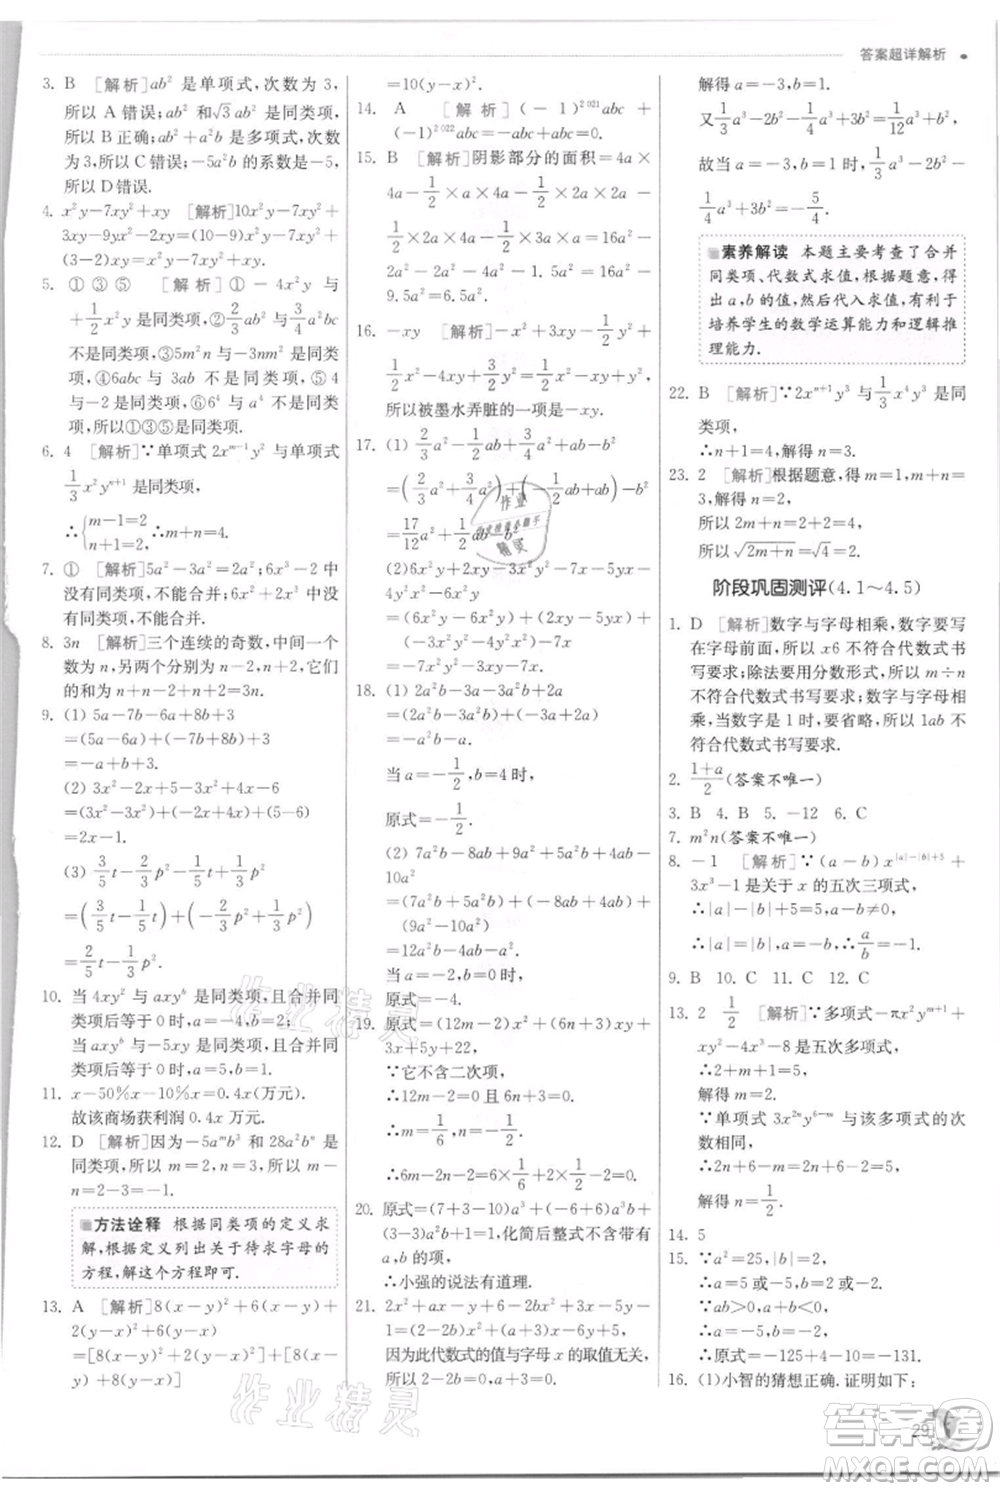 答案超详解析
3. B [解析]ab²是单项式,次数为3,
所以A错误;ab²和√3ab²是同类项,
所以B正确;ab²+a²b是多项式,次数
为3,所以C错误;-5a²b的系数是-5,
所以D错误.
4. x²y-7xy²+xy [解析]10x²y-7xy²+
3xy-9x²y-2xy=(10-9)x²y-7xy²+
(3-2)xy=x²y-7xy²+xy.
5. ①③⑤ [解析]①-4x²y与
+1/2x²y是同类项,②2/3ab²与3/4a²b
不是同类项,③5m²n与-3nm²是同类
项,④6abc与3ab不是同类项,⑤1与
1/4是同类项,⑥6⁴与a⁴不是同类项.
所以①③⑤是同类项.
6. 4 [解析]∵单项式2xᵐ⁻¹y²与
1/3x²yⁿ⁺¹是同类项,
∴{m-1=2, n+1=2, ∴m+n=4.
7. ① [解析]5a²-3a²=2a²;6x³-2x²
中没有同类项,不能合并;3a+2b中没
有同类项,不能合并.
8. 3n [解析]三个连续的奇数,中间的一
个为n,另两个分别为n-2,n+2,它们
的和为n+n-2+n+2=3n.
9. (1) 5a-7b-6a+8b+3
=(5a-6a)+(-7b+8b)+3
=-a+b+3.
(2) 3x²-2x-3x²+4x-6
=(3x²-3x²)+(-2x+4x)+(-6)
=2x-6.
(3) 3/5t-2/3p²-1/5t+1/3p²
=(3/5t-1/5t)+(-2/3p²+1/3p²)
=2/5t-1/3p².
10. 当4xy²与axyᵇ是同类项,且合并同
类项后等于0时,a=-4,b=2;
当axyᵇ与-5xy是同类项,且合并同
类项后等于0时,a=5,b=1.
11. x-50%x-10%x=0.4x(万元).
故该商场获利润0.4x万元.
12. D [解析]因为-5aᵐb³和28a²bⁿ是
同类项,所以m=2,n=3,所以m-
n=2-3=-1.
方法诠释 根据同类项的定义求
解,根据定义列出关于待求字母的
方程,解这个方程即可.
13. A [解析]8(x-y)²+6(x-y)+
2(y-x)²-6(x-y)
=[8(x-y)²+2(x-y)²]+[6(y-
x)+6(x-y)]
=10(y-x)².
14. A [解析](-1)²⁰²¹abc+
(-1)²⁰²²abc=0.
15. B [解析]阴影部分的面积=4a×
4a-1/2×4a×3a-1/2×2a×2a-
1/2×2a×4a-1/2×a×a=16a²-
6a²-2a²-4a²-1/2a²=
9.5a²-6a²=3.5a².
16. -xy [解析]-x²+3xy-1/2y²+
1/2x²-4xy+3/2y²+1/2x²-y²=-xy,
所以被墨水弄脏的一项是-xy.
17. (1) 2/3a²-1/2ab+3/4a²+ab-b²
=(2/3a²+3/4a²)+(-1/2ab+ab)-b²=
17/12a²+1/2ab-b².
(2)6x²y+2xy-3x²y²-7x-
5yx-4x²y²-6x²y
=(6x²y-6x²y)+(-3x²y²-
4x²y²)+(2xy-5xy)-7x
=-7x²y²-3xy-7x.
18. (1) 2a²-b²+(2a-b²)-(a²+
2b²)+4b²-3a
=(2a²-a²)+(2a-3a)
-b²-a.
当a=-1/2,b=4时,
原式=-1/2.
(2) 7a²b-4ab+5a²b+2ab-9a²+
10a²
=(7a²b+5a²b)+(-4ab+2ab)-
(9a²-10a²)
=12a²b-2ab+a².
当a=-2,b=0时,
原式=4.
19. 原式=(12m-2)x²+(6n+3)xy+
5x+y+22.
∵它不含二次项,
∴12m-2=0且6n+3=0.
∴m=1/6,n=-1/2.
∴6m-2n=6×1/6+2×1/2=2.
20. 原式=(7+3-10)a³+(-6+6)a³b+
(3-3)a²b=0,化简后不含带有
a,b的项.
∴小强的说法有道理.
21. 2x²+ax-y+6-2bx²-3x+5y-
1=(2-2b)x²+(a+3)x-6y+5.
因为此代数式的值与字母x的取值无关,
所以2-2b=0,a+3=0,
解得a=-3,b=1.
又1/3a³-2b²-1/4a³+3b²=
1/12a³+b²,
故当a=-3,b=1时,1/3a³-2b²-
1/4a³+3b²=-5/4.
素养解读 本题主要考查了合并
同类项、代数式求值,根据题意,得
出a,b的值,然后代入求值,有利于
培养学生的数学运算能力和逻辑推
理能力.
22. B [解析]∵2xⁿ⁺¹y³与1/3x⁴y³是同
类项,
∴n+1=4,解得n=3.
23. 2 [解析]根据题意,得m=1,m+n=
3,解得n=2.
所以2m+n=4.
所以√(2m+n)=√4=2.
阶段巩固测评(4.1~4.5)
1. D [解析]数字与字母相乘,数字要写
在字母前面,所以x6不符合代数式书
写要求;除法要用分数形式,所以m÷n
不符合代数式书写要求;字母与字母相
乘时,当数字是1时,要省略,所以1ab不
符合代数式书写要求.
2. (1+a)/2(答案不唯一)
3. B 4. B 5. -12 6. C
7. m²n(答案不唯一)
8. -1 [解析]∵(a-b)x^(|a|-|b|+5)+
3x²-1是关于x的五次三项式,
∴|a|-|b|+5=5,a-b≠0,
∴|a|=|b|,a=-b.∴a/b=-1.
9. B 10. C 11. C 12. C
13. 2 1/2 [解析]∵多项式-πx²yᵐ⁺¹+
xy²-4x³-8是五次多项式,
∴2+m+1=5.
解得m=2.
∵单项式3x²ⁿy⁶⁻ᵐ与该多项式的次
数相同,
∴2n+6-m=5,即2n+6-2=5,
解得n=1/2.
14. 5
15. ∵a²=25,|b|=1,
∴a=5或-5,b=1或-1.
∵ab>0,a+b<0,
∴a=-5,b=-1.
∴原式=-125+4-10=-131.
16. (1)小智的猜想正确.证明如下:
29
作业精灵
作业精灵
答案
MXQE.COM